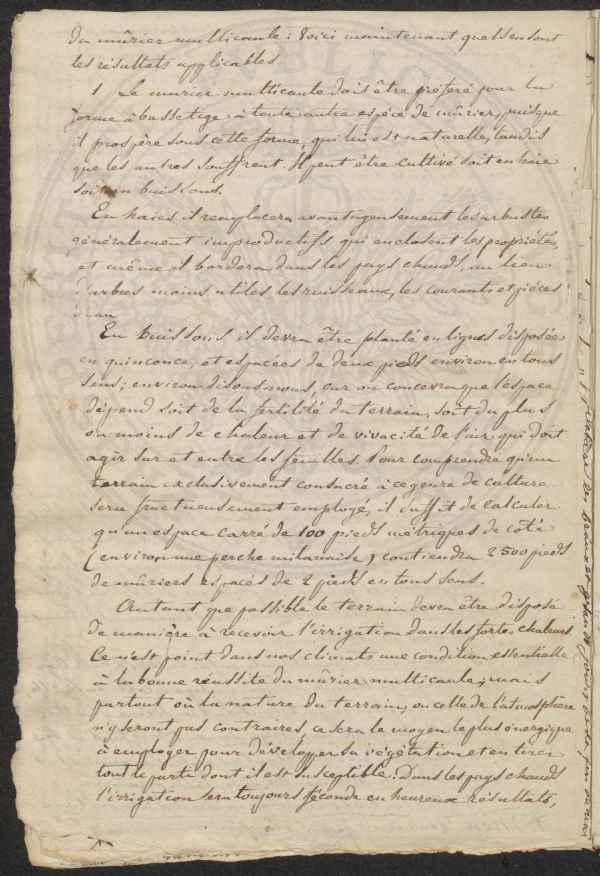 du mûrier multicaule : Voici maintenant quels en sont
les résultats applicables.
1 Le murier multicaule doit être préferé pour la
forme à basse tige à toute autre espéce de mûrier, puisque
il prospère sous cette forme, qui lui est naturelle, tandis
que les autres souffrent. Il peut être cultivé soit en haie
soit en buissons.
En haies il remplacera avantageusement les arbustes
généralement improductifs qui enclosent les propriétés,
et même il bordera dans les pays chauds, au lieu
d'arbres moins utiles les ruisseaux, les courants et pièces
d'eau
En buissons il devra être planté en lignes disposées
en quinconce, et espacées de deux pieds environ en tous
sens; environ disons nous, car on concevra que l'espace
dépend soit de la fertilité du terrain, soit du plus
ou moins de chaleur et de vivacité de l'air qui doit
agir sur et entre les feuilles. Pour comprendre qu'un
terrain exclusivement consacré à ce genre de culture
sera fructueusement employé, il suffit de calculer
qu'un espace carré de 100 pieds métriques de côté
(environ une perche milanaise) contiendra 2500 pieds
de mûriers espacés de 2 pieds en tous sens.
Autant que possible le terrain devra être disposé
de manière à recevoir l'irrigation dans les fortes chaleurs.
Ce n'est point dans nos climats une condition essentielle
à la bonne réussite du mûrier multicaule; mais
partout où la nature du terrain, ou celle de l'atmosphère
n'y seront pas contraires, ce sera le moyen le plus énergique
à employer pour développer sa végétation et en tirer
tout le parti dont il est susceptible. Dans les pays chauds
l'irrigation sera toujours féconde en heureux résultats,